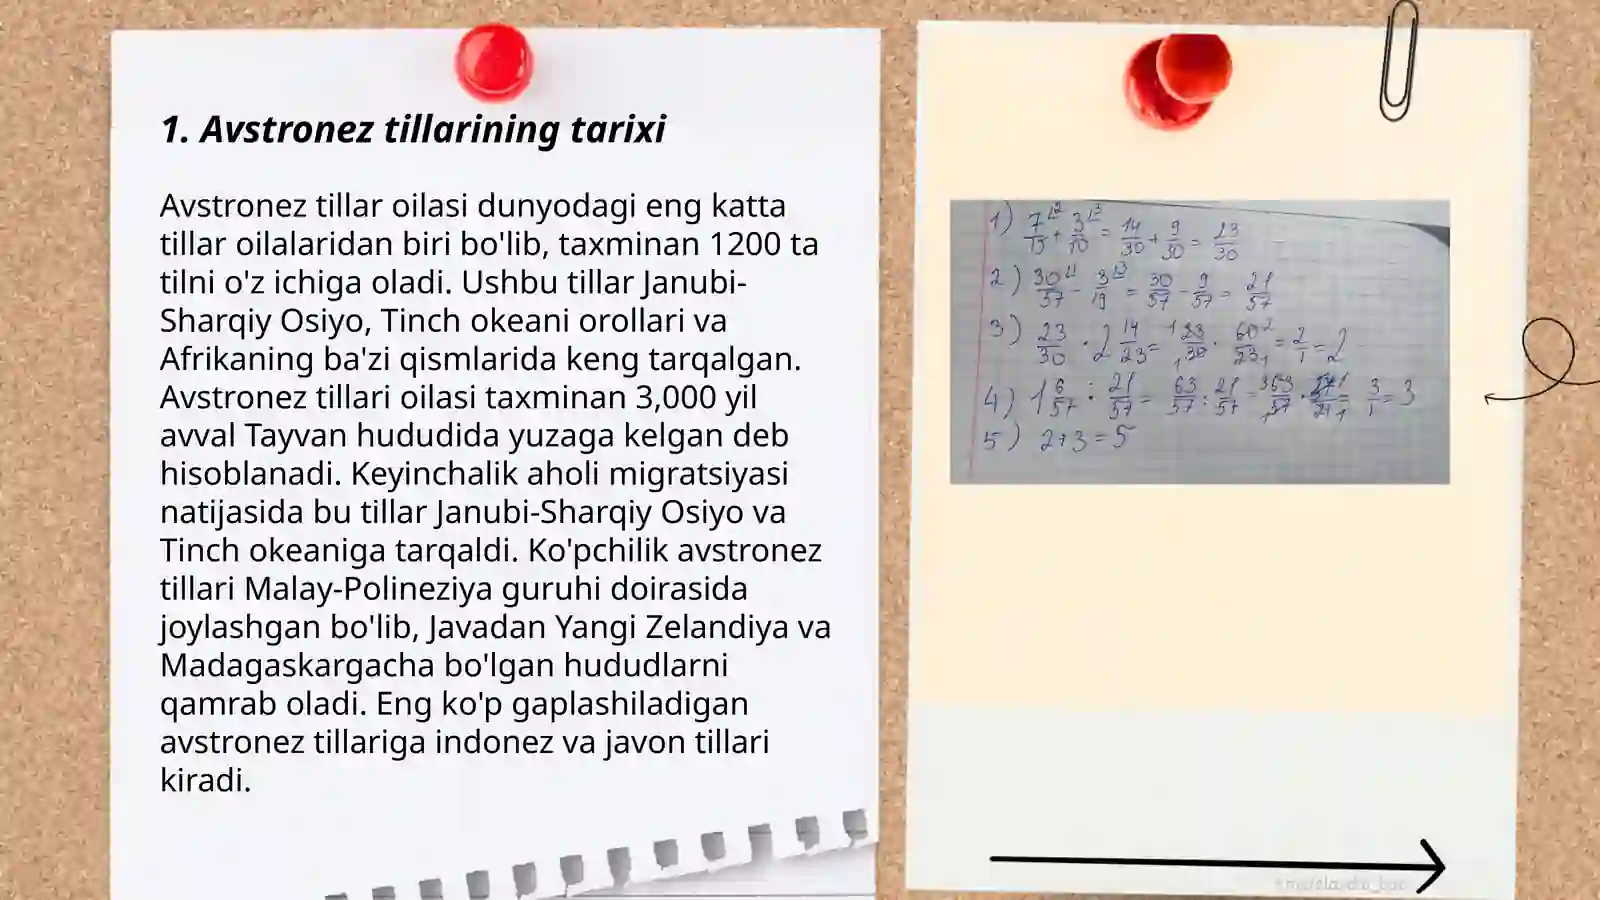 1. Avstronez tillarining tarixi
Avstronez tillar oilasi dunyodagi eng katta
tillar oilalaridan biri bo'lib, taxminan 1200 ta
tilni o'z ichiga oladi. Ushbu tillar Janubi-
Sharqiy Osiyo, Tinch okeani orollari va
Afrikaning ba'zi qismlarida keng tarqalgan.
Avstronez tillari oilasi taxminan 3,000 yil
avval Tayvan hududida yuzaga kelgan deb
hisoblanadi. Keyinchalik aholi migratsiyasi
natijasida bu tillar Janubi-Sharqiy Osiyo va
Tinch okeaniga tarqaldi. Ko'pchilik avstronez
tillari Malay-Polineziya guruhi doirasida
joylashgan bo'lib, Javadan Yangi Zelandiya va
Madagaskargacha bo'lgan hududlarni
qamrab oladi. Eng ko'p gaplashiladigan
avstronez tillariga indonez va javon tillari
kiradi.
1) 7/15 + 3/10 = 14/30 + 9/30 = 23/30
2) 30/57 - 3/19 = 30/57 - 9/57 = 21/57
3) 23/30 · 2 14/23 = 23/30 · 60/23 = 2/1 = 2
4) 1 6/57 : 21/57 = 63/57 : 21/57 = 63/57 · 57/21 = 3/1 = 3
5) 2+3=5